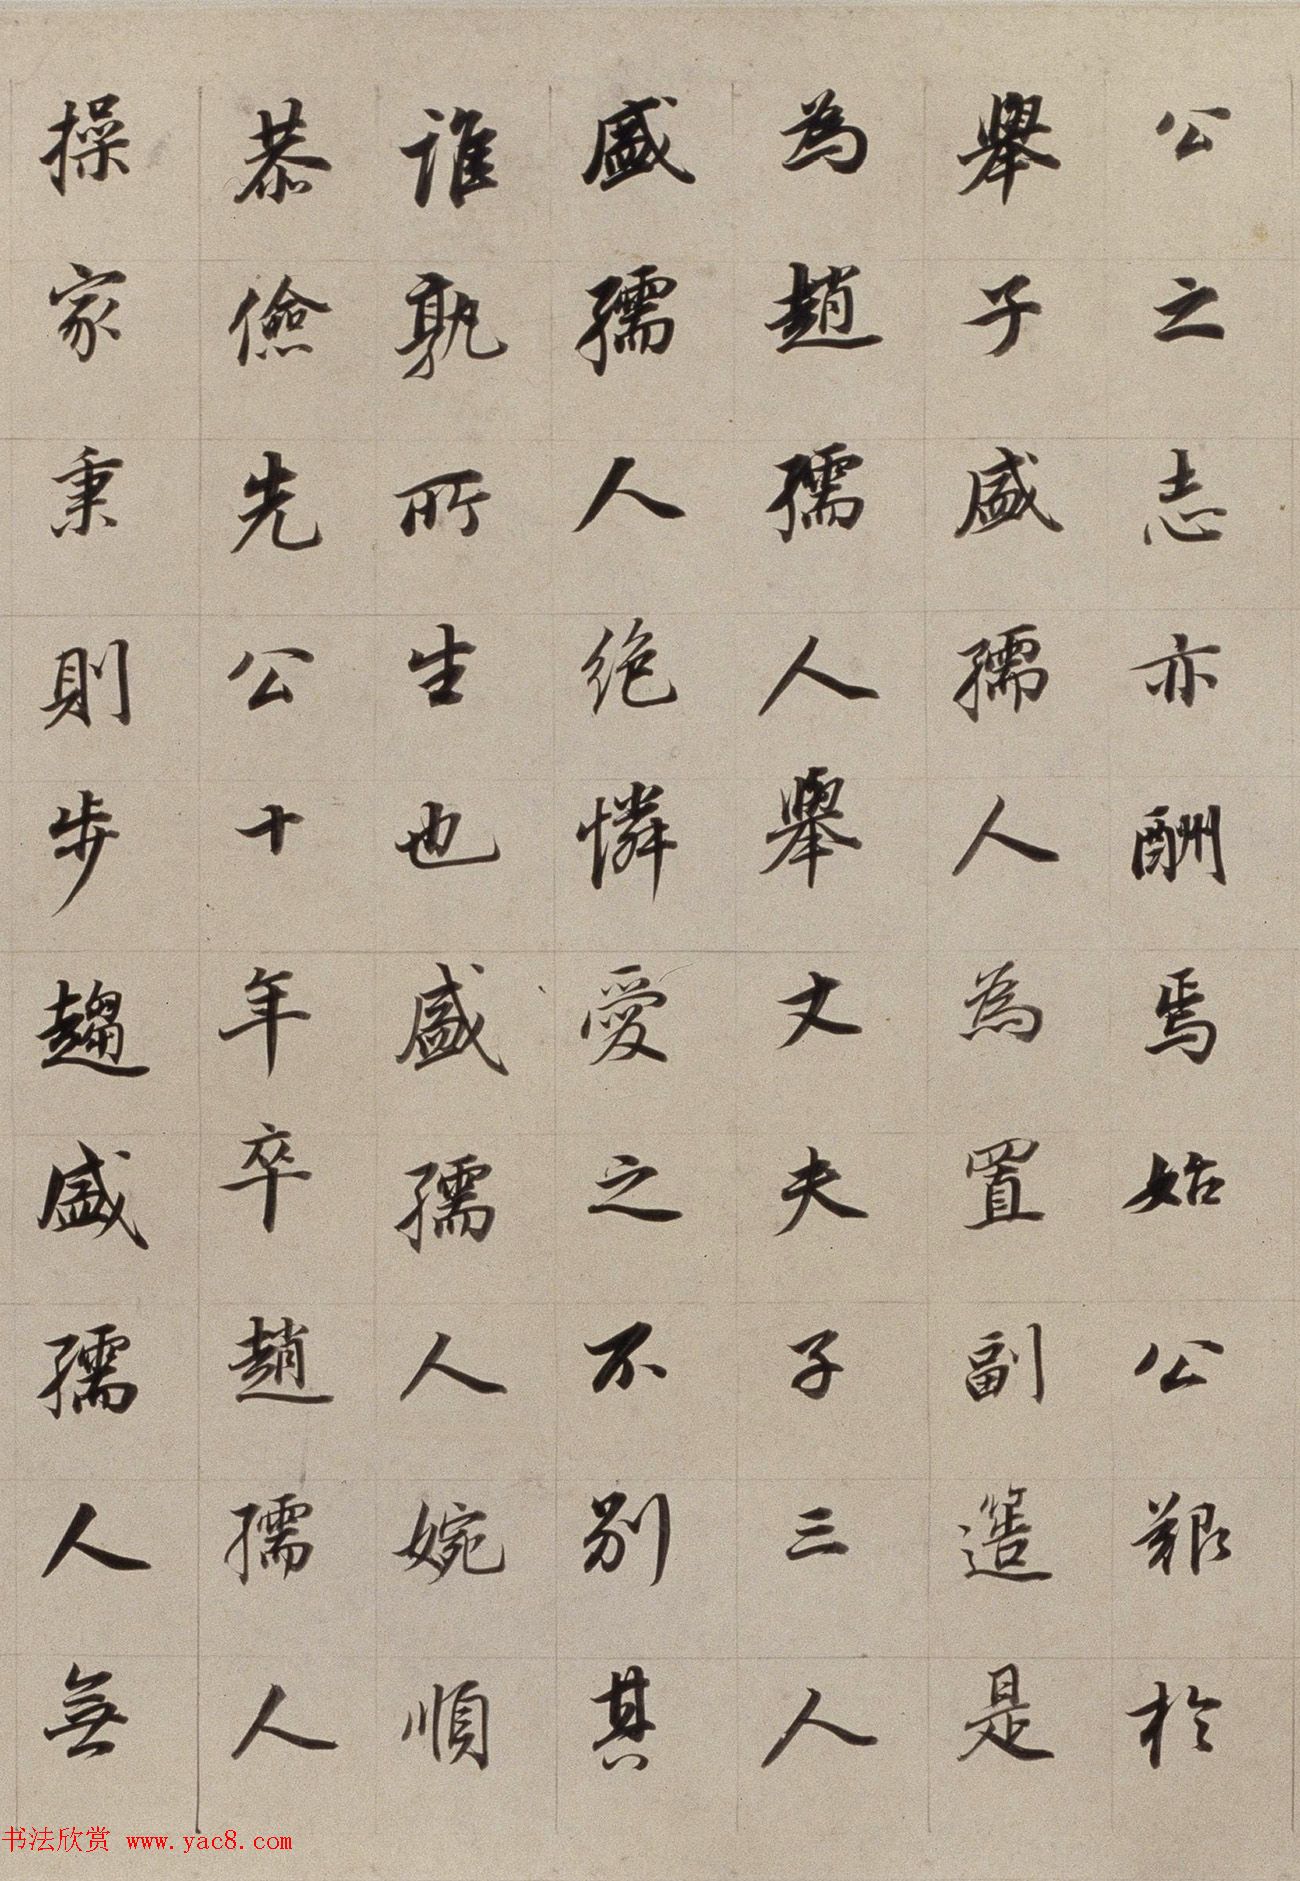 公之志亦酬焉始公艱於
舉子盛孺人為置副簉是
為趙孺人舉丈夫子三人
盛孺人絶憐愛之不別其
誰孰所生也盛孺人婉順
恭儉先公十年卒趙孺人
操家秉則步趨盛孺人無
书法欣赏 www.yac8.com